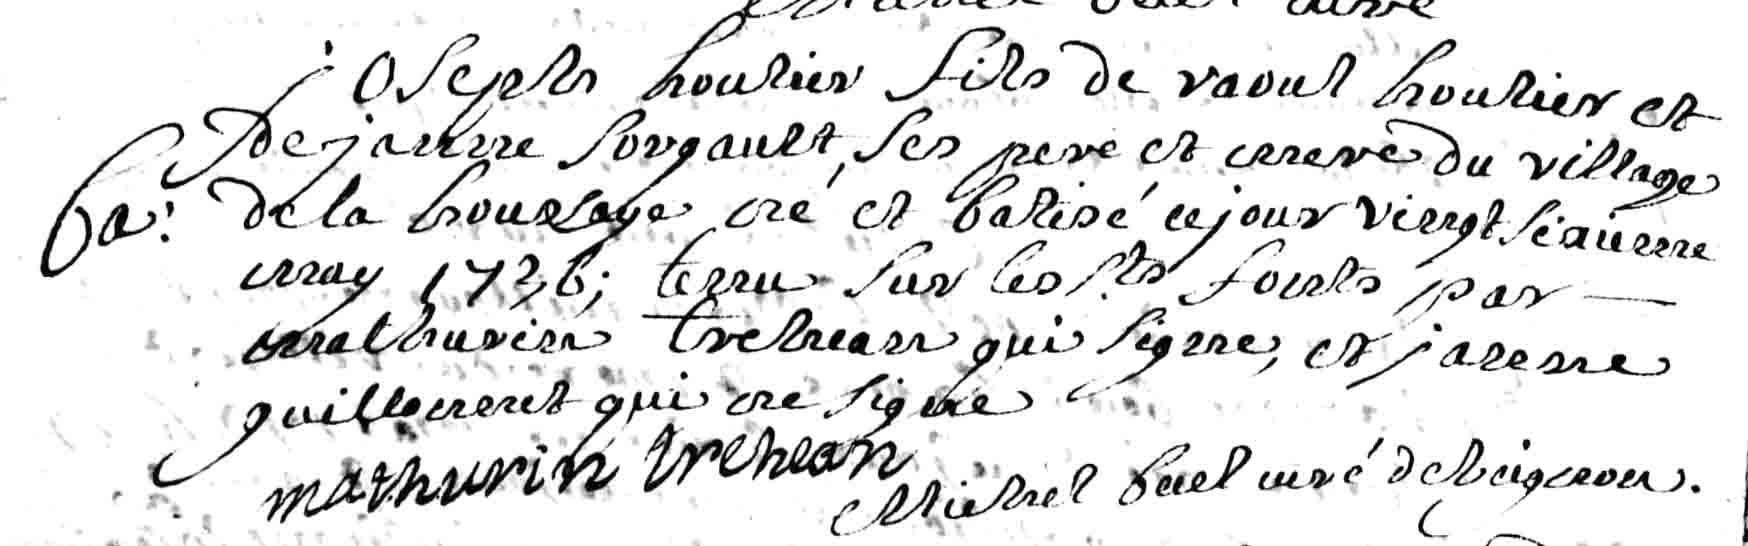 joseph houlier fils de raoul houlier et
de janne sorgault, ses pere et mere du village
ba: de la houssaye né et batisé ce jour vingt sixieme
may 1736; tenu sur les fonts par
mathurin trehean qui signe, et janne
qui ne signe
mathurin trehean
Michel buel curé de